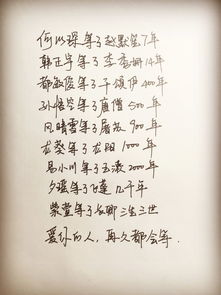 何以琛等了赵默笙7年
韩正宇等了李秀娜14年
都敏俊等了千颂伊400年
孙悟空等了唐僧500年
风晴雪等了屠苏900年
龙葵等了龙阳1000年
易小川等了玉漱2000年
夕瑶等了飞蓬几千年
紫萱等了长卿三生三世
爱你的人，再久都会等．